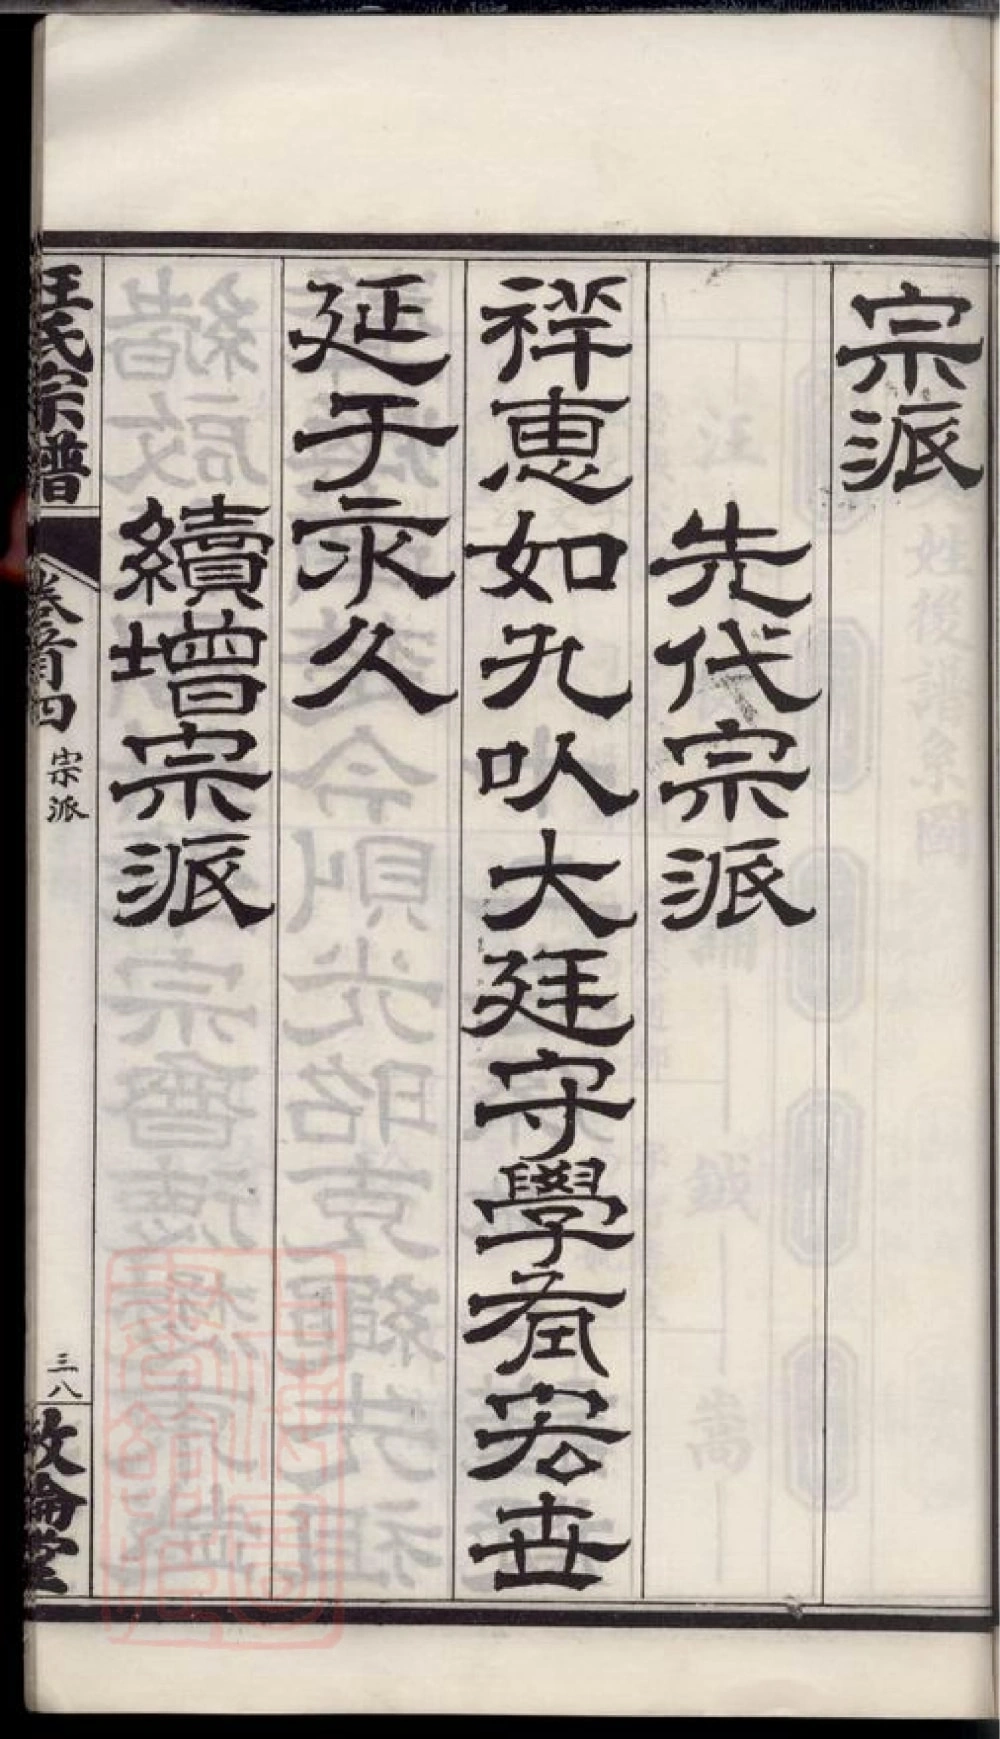 宗派
先代宗派
祥惠如孔以大廷守學希宏世
延于永久
續增宗派
汪氏宗譜
卷首四
宗派
三八
敘倫堂